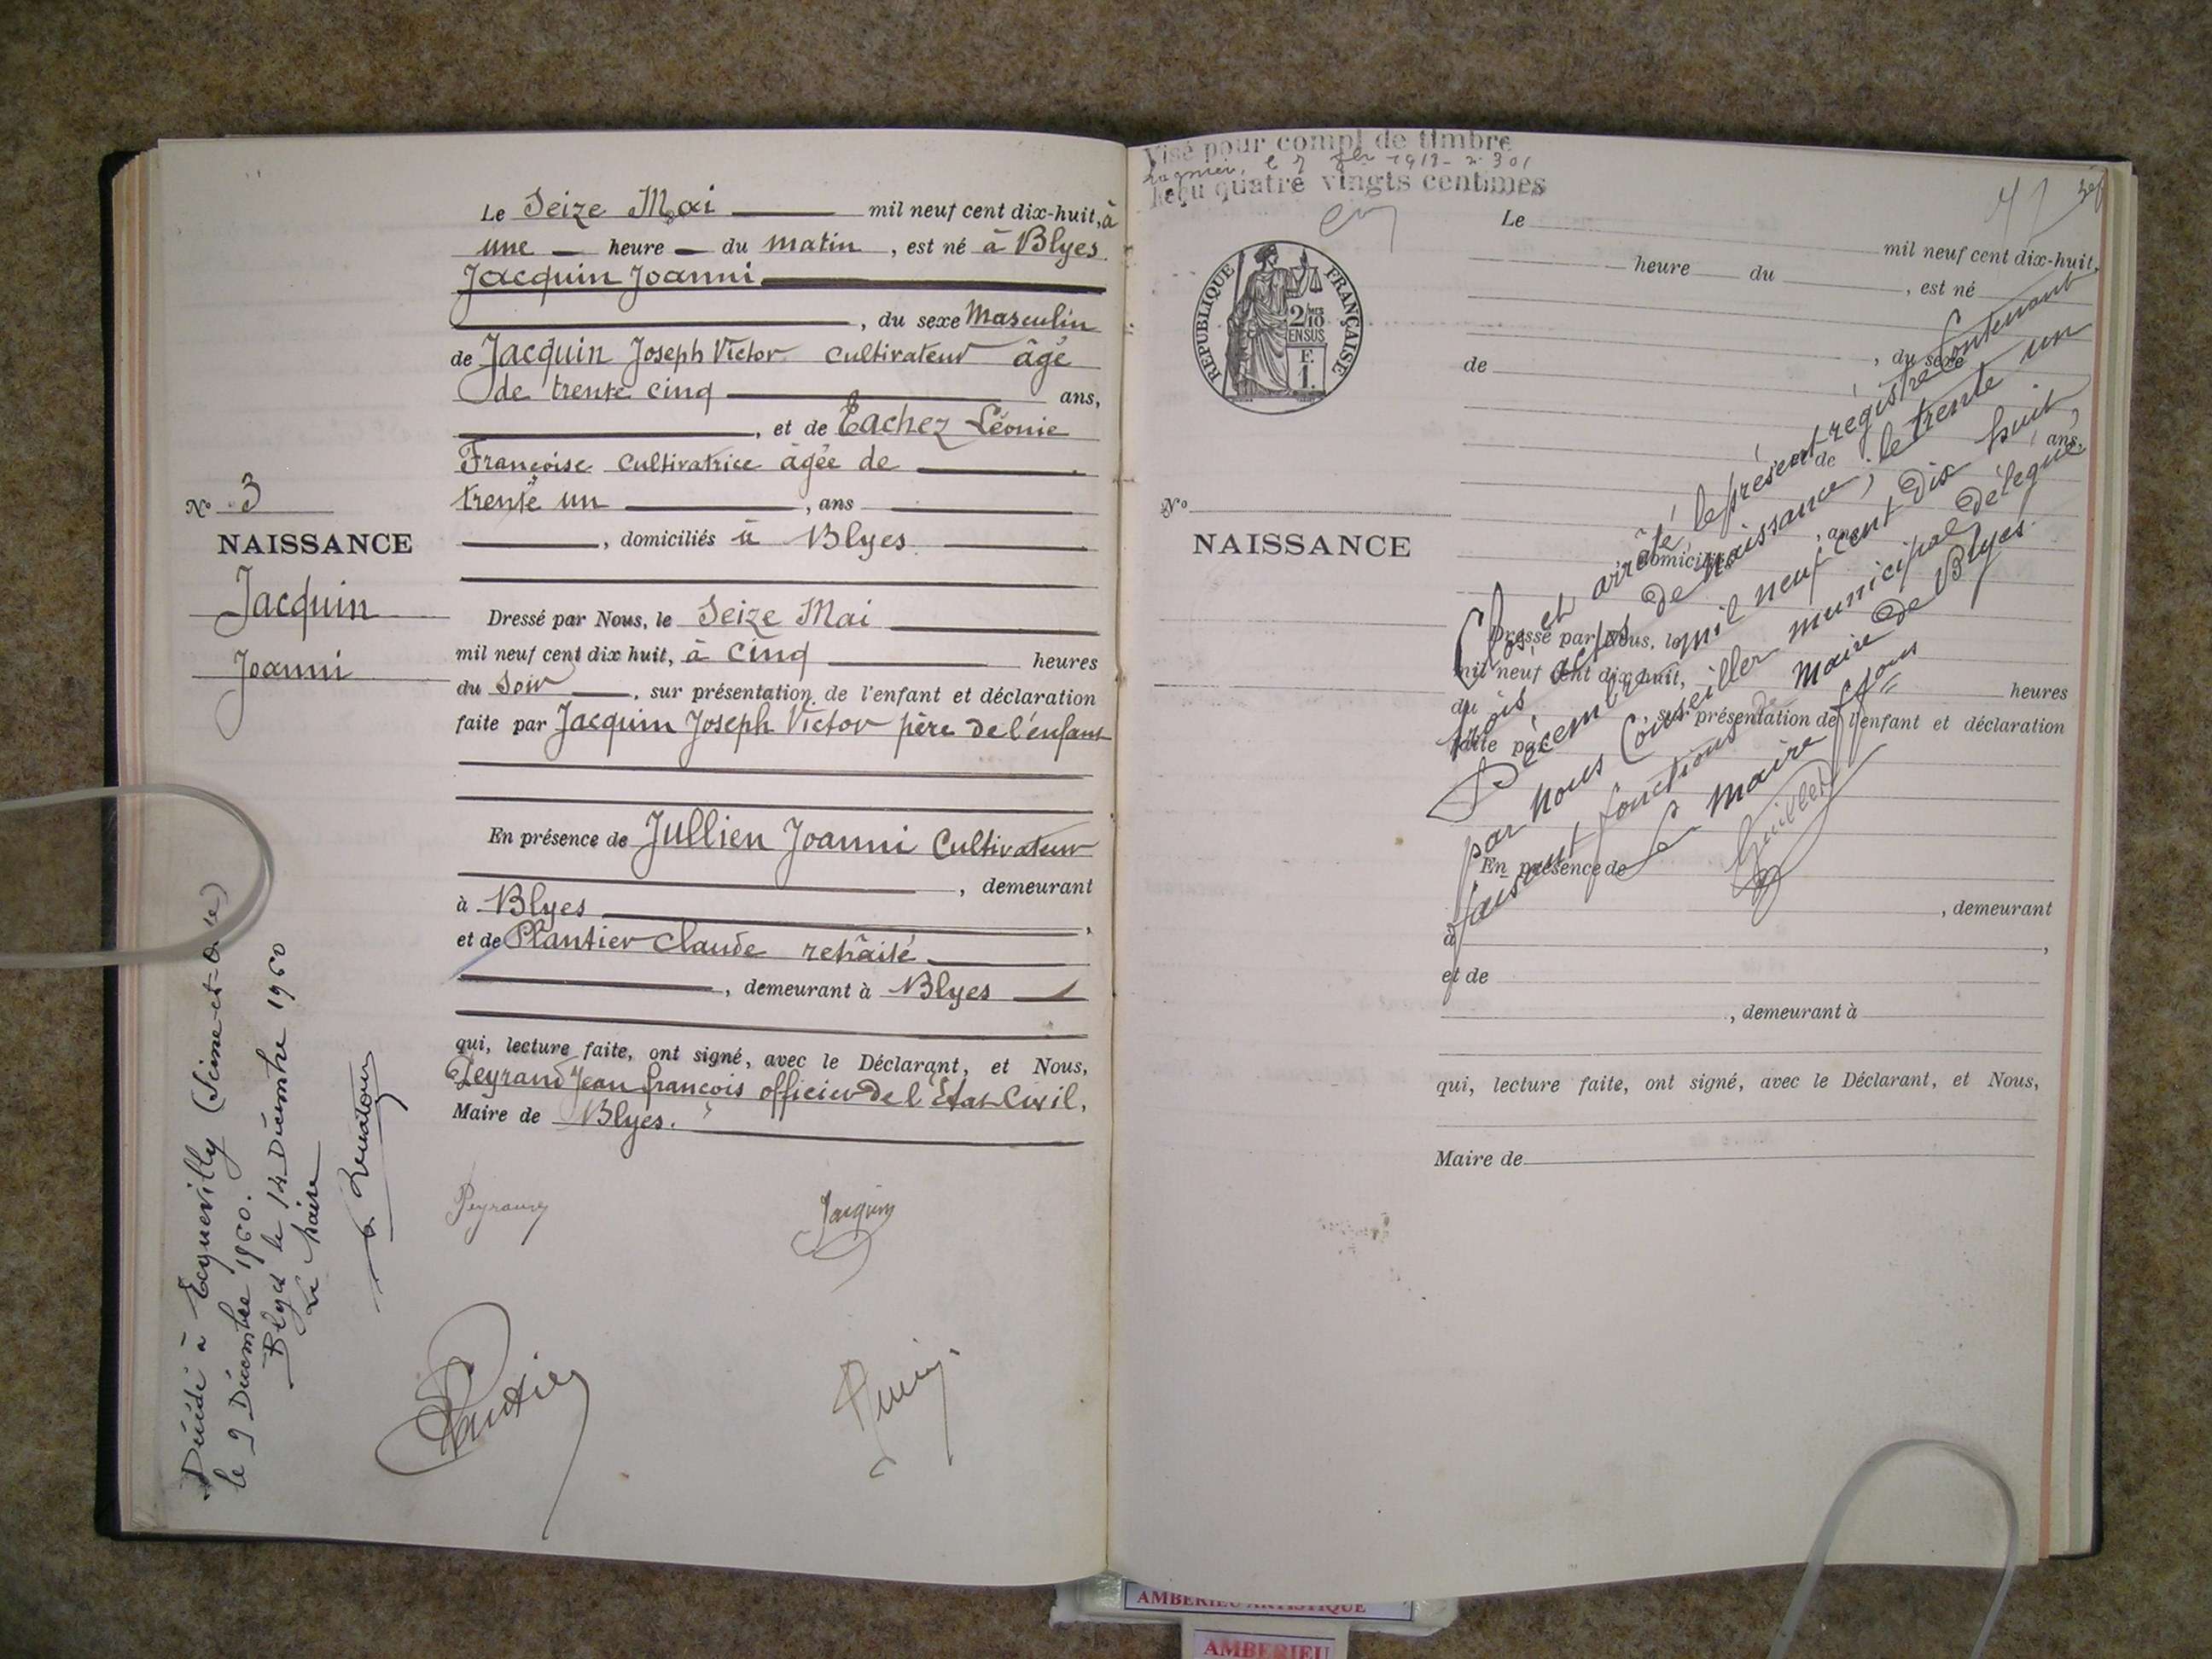 Le Seize Mai mil neuf cent dix-huit, à
une heure du matin, est né à Blyes
Jacquin Joanni
, du sexe Masculin
de Jacquin Joseph Victor cultivateur âgé
de trente cinq ans,
, et de Eachez Léonie
Françoise cultivatrice âgée de
trente un, ans
, domiciliés à Blyes
No 3
NAISSANCE
Jacquin
Joanni
Dressé par Nous, le Seize Mai
mil neuf cent dix huit, à cinq heures
du soir, sur présentation de l'enfant et déclaration
faite par Jacquin Joseph Victor père de l'enfant
En présence de Jullien Joanni Cultivateur
, demeurant
à Blyes,
et de Plantier Claude retraité
, demeurant à Blyes
qui, lecture faite, ont signé, avec le Déclarant, et Nous,
Peyrand Jean françois officier de l'État Civil,
Maire de Blyes.
Peyrand
Jacquin
Plantier
Décédé à Ecquevilly (Seine-et-Oise)
le 9 Décembre 1960.
Blyes le 14 Décembre 1960
Le Maire
Visé pour compl de timbre
Lagnieu, le 7 1917 - n° 301
Reçu quatre vingts centimes
REPUBLIQUE FRANÇAISE
2/10 EN SUS
F. 1.
Le
mil neuf cent dix-huit,
heure du, est né
, du sexe
de
ans,
et de
, ans
domiciliés
No
NAISSANCE
Dressé par Nous, le
mil neuf cent dix huit, heures
du, sur présentation de l'enfant et déclaration
faite par
En présence de
, demeurant
à,
et de
, demeurant à
qui, lecture faite, ont signé, avec le Déclarant, et Nous,
Maire de
Clos et arrêté le présent régistre Contenant
trois actes de Naissance, le trente un
Décembre mil neuf cent Dix huit,
par Nous Conseiller municipal délégué
faisant fonctions de Maire de Blyes.
Le Maire ffons
Guillet
AMBERIEU ARTISTIQUE
AMBERIEU